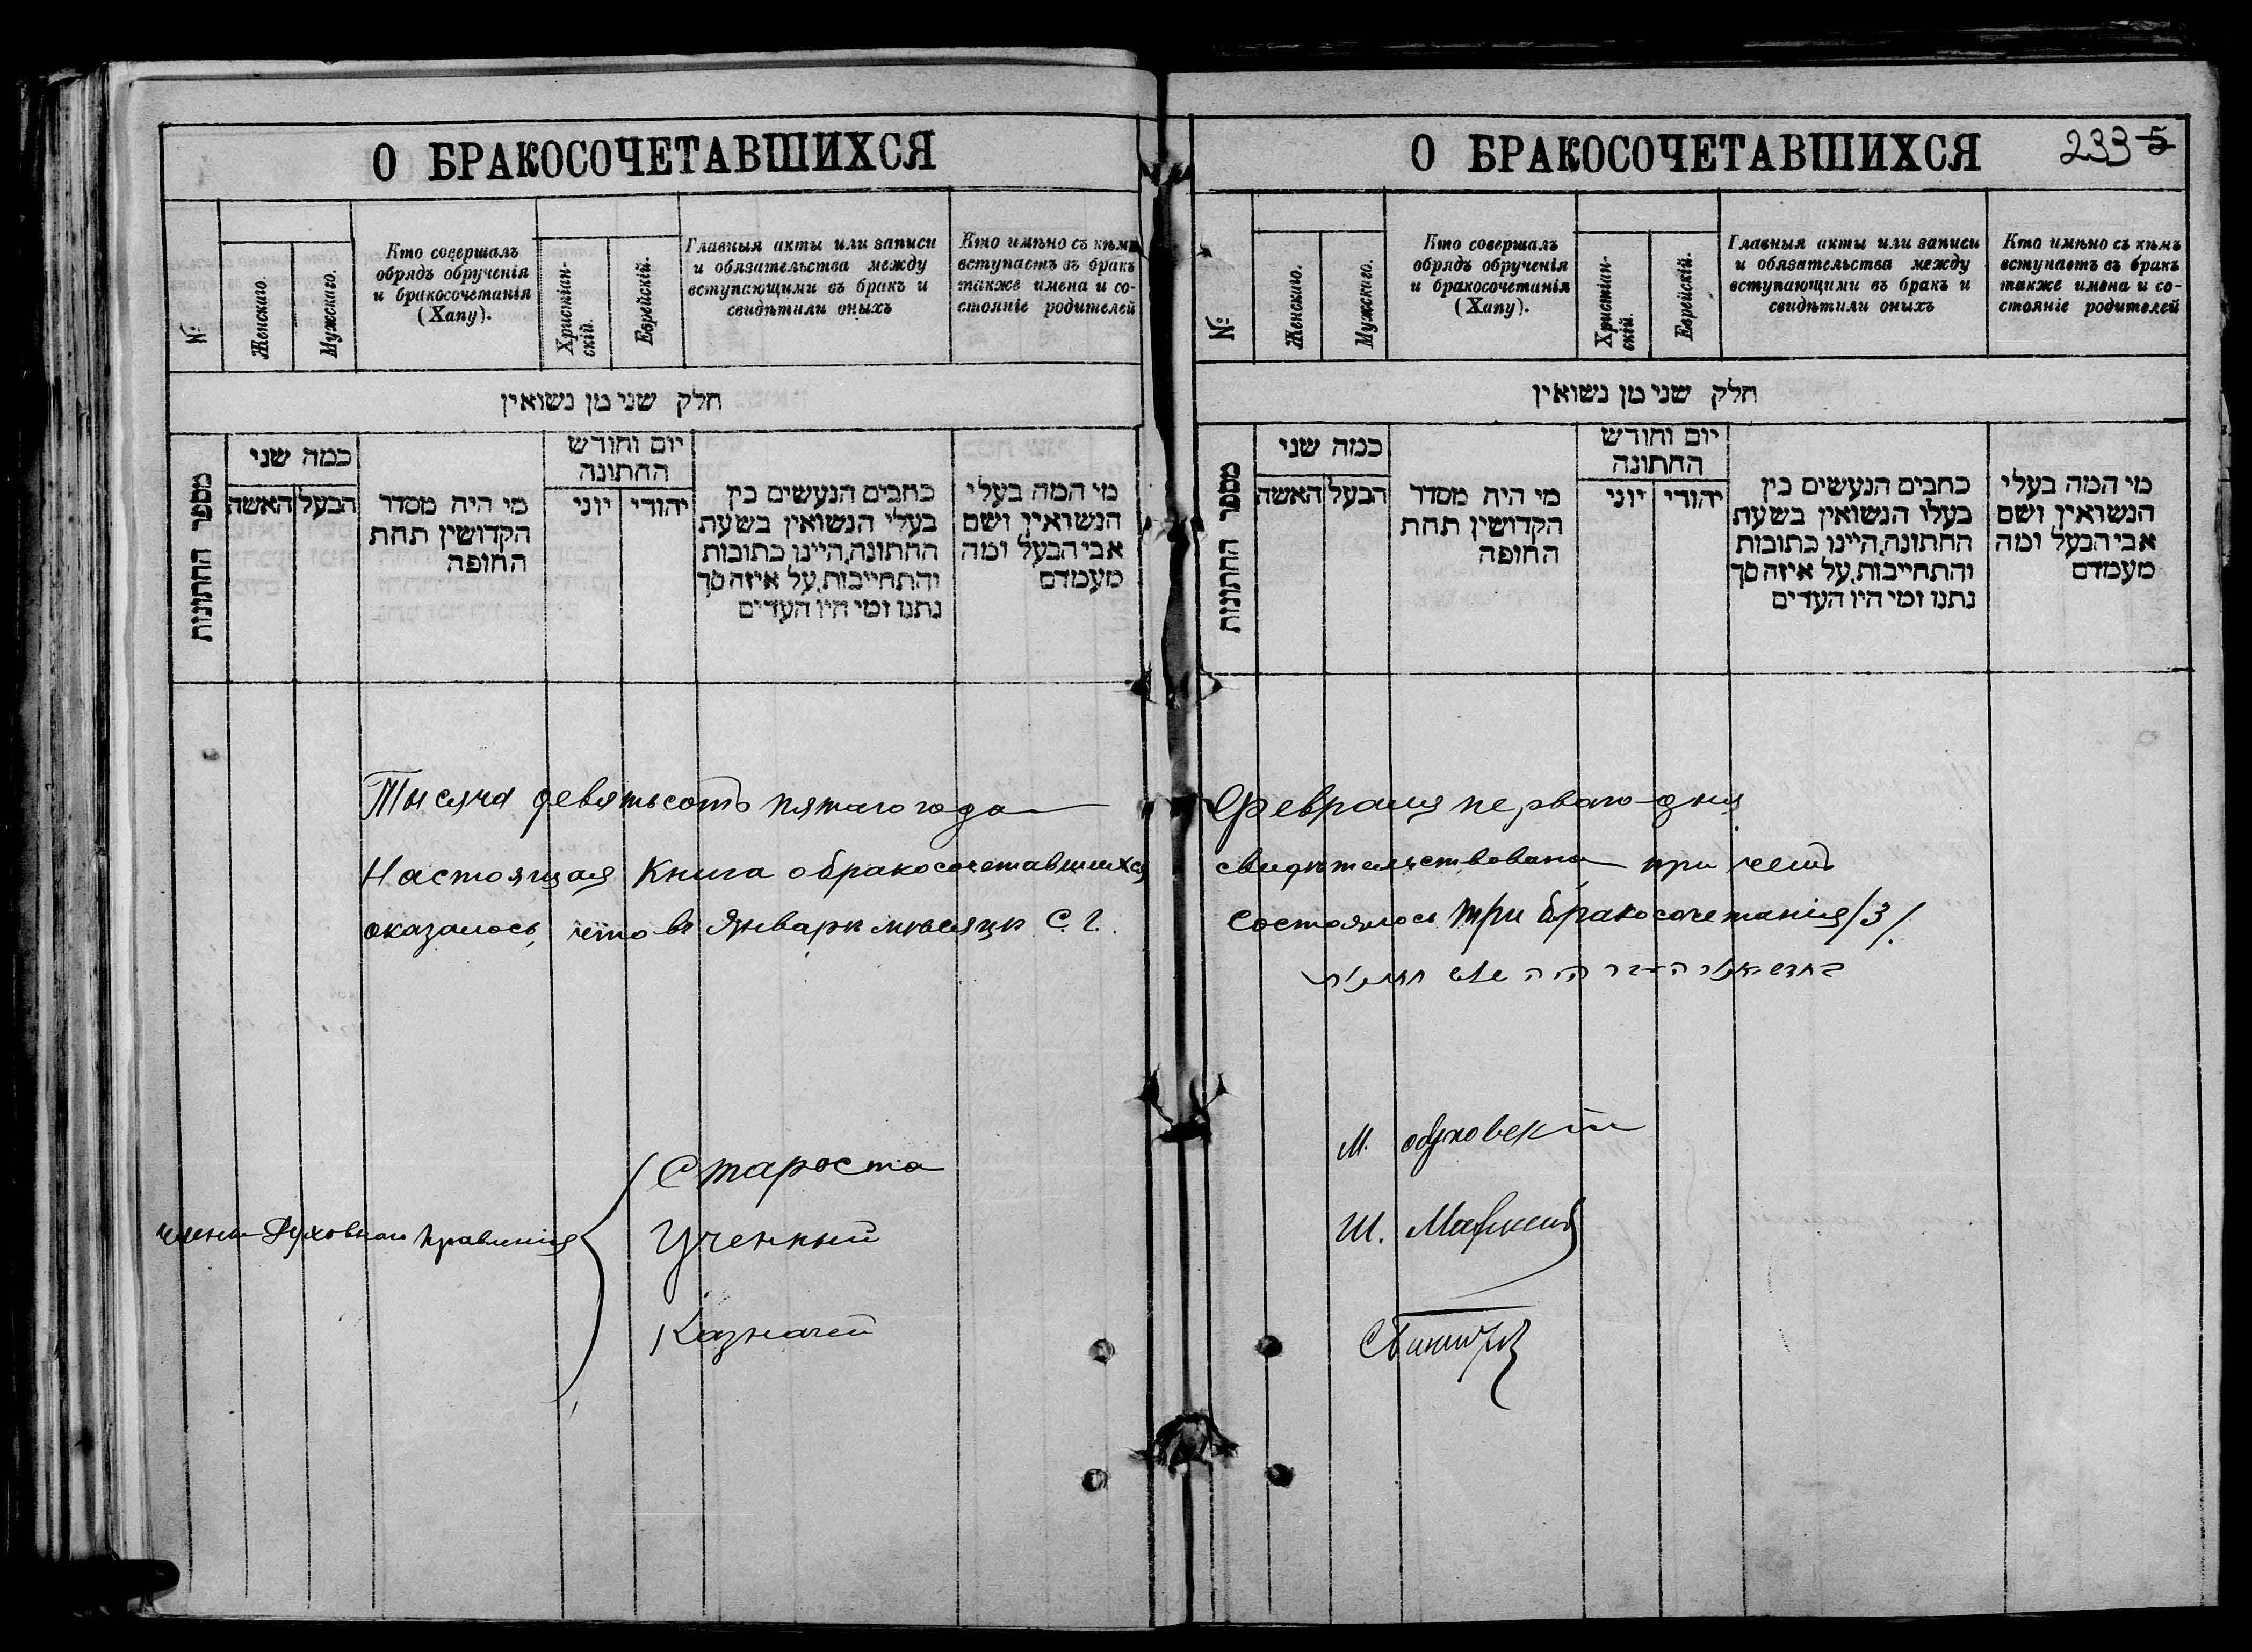 О БРАКОСОЧЕТАВШИХСЯ
№
Женскаго.
Мужскаго.
Кто совершалъ
обрядъ обрученія
и бракосочетанія
(Хапу).
Христіан-
скій.
Еврейскій.
Главныя акты или записи
и обязательства между
вступающими въ бракъ и
свидѣтили оныхъ
Кто имѣно съ кѣмъ
вступаетъ въ бракъ
также имена и со-
стояніе родителей
חלק שני מן נשואין
מספר החתונות
כמה שני
הבעל
האשה
מי היה מסדר
הקדושין תחת
החופה
יום וחודש
החתונה
יהודי
יוני
כתבים הנעשים בין
בעלי הנשואין בשעת
החתונה, היינו כתובות
והתחייבות, על איזה סך
נתנו ומי היו העדים
מי המה בעלי
הנשואין ושם
אבי הבעל ומה
מעמדם
Тысяча девятьсотъ пятаго года
Настоящая Книга о бракосочетавшихся
оказалось, что въ Январѣ мѣсяцѣ С. г.
Члены Духовнаго Правленія
Староста
Ученный
Казначей
О БРАКОСОЧЕТАВШИХСЯ
233 5
№
Женскаго.
Мужскаго.
Кто совершалъ
обрядъ обрученія
и бракосочетанія
(Хапу).
Христіан-
скій.
Еврейскій.
Главныя акты или записи
и обязательства между
вступающими въ бракъ и
свидѣтили оныхъ
Кто имѣно съ кѣмъ
вступаетъ въ бракъ
также имена и со-
стояніе родителей
חלק שני מן נשואין
מספר החתונות
כמה שני
הבעל
האשה
מי היה מסדר
הקדושין תחת
החופה
יום וחודש
החתונה
יהודי
יוני
כתבים הנעשים בין
בעלי הנשואין בשעת
החתונה, היינו כתובות
והתחייבות, על איזה סך
נתנו ומי היו העדים
מי המה בעלי
הנשואין ושם
אבי הבעל ומה
מעמדם
Февраля перваго дня
свидѣтельствована при чемъ
состоялось три бракосочетанія /3/.
М.
Ш.